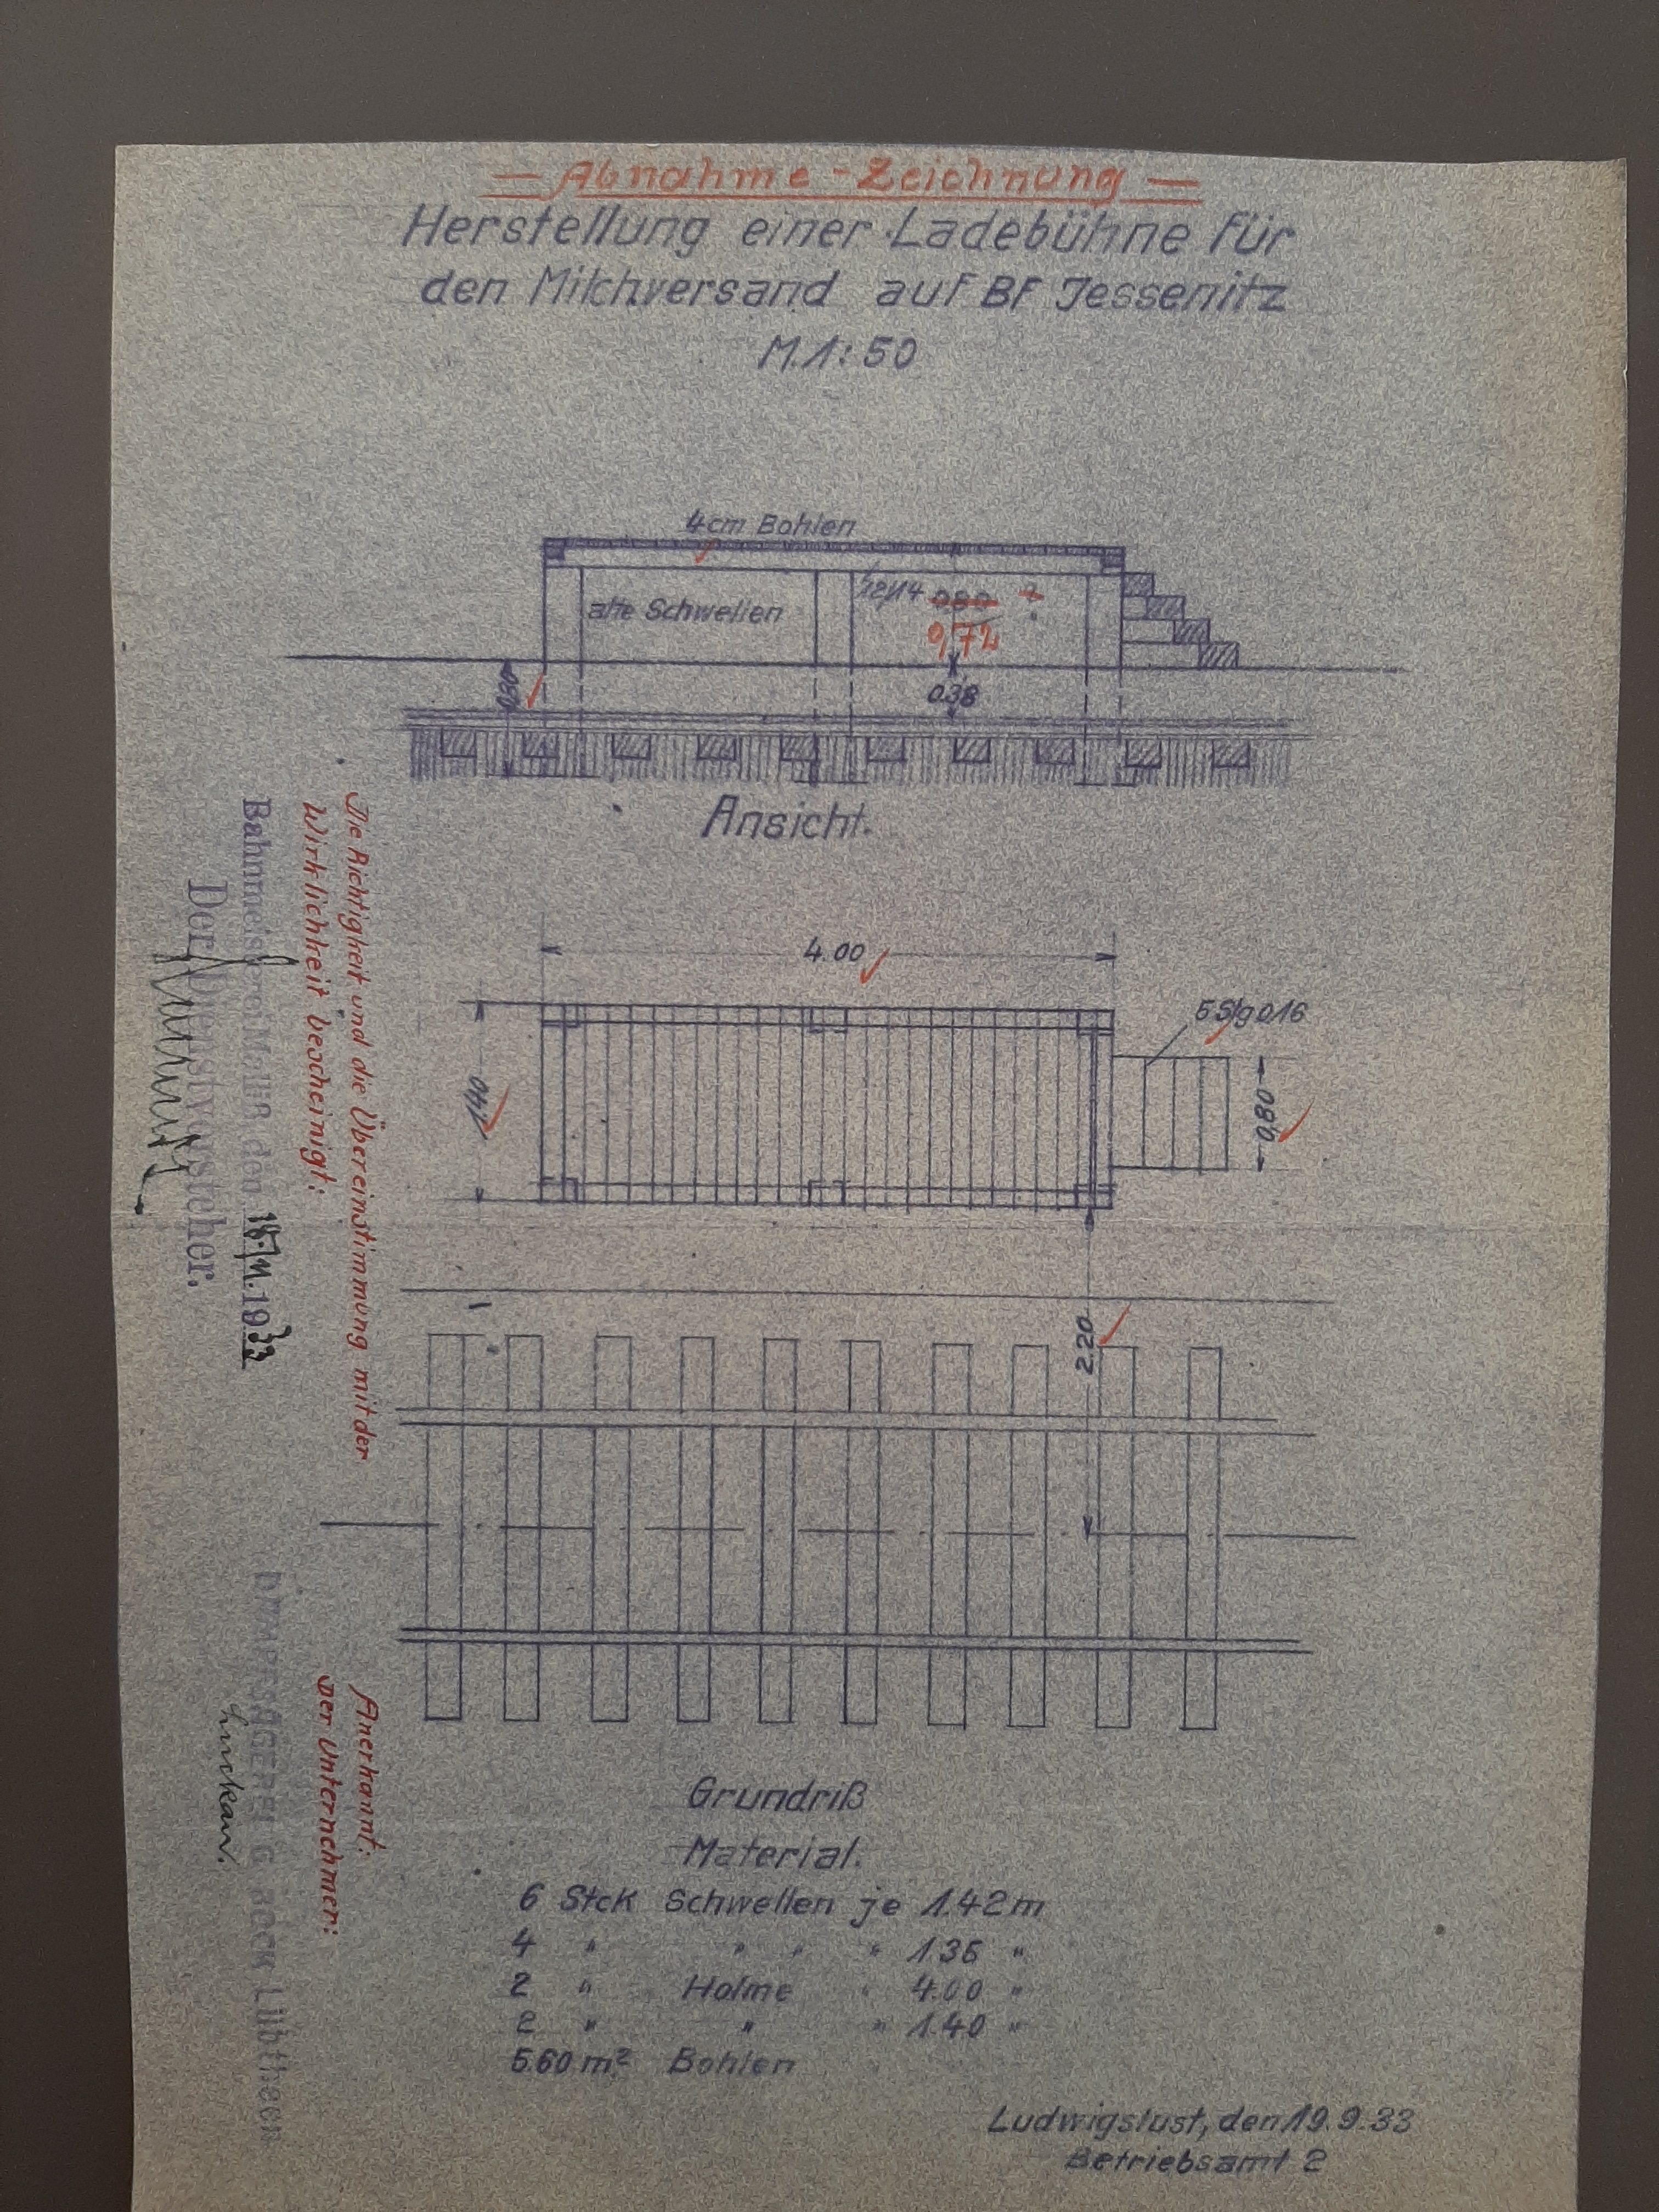 — Abnahme-Zeichnung —
Herstellung einer Ladebühne für
den Milchversand auf BF Jessenitz
M.1:50
4cm Bohlen
alte Schwellen
12/14
080 ?
0,72
0.38
Ansicht.
4.00
1,40
5 Stg 0.16
0,80
2.20
Grundriß
Material.
6 Stck Schwellen je 1.42 m
4 " " " " 1.36 "
2 " Holme " 4.00 "
2 " " " 1.40 "
5.60 m² Bohlen
Ludwigslust, den 19.9.33
Betriebsamt 2
Die Richtigkeit und die Übereinstimmung mit der
Wirklichkeit bescheinigt:
Bahnmeisterei Malliß, den 18.11.1933
Der Dienstvorsteher.
Anerkannt:
Der Unternehmer:
DAMPFSÄGEREI G. BOCK, Lübtheen